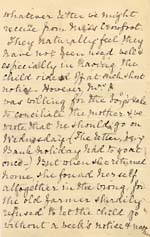 whatever letter we might
receive from Miss
They naturally feel they
have not been used well &
especially in having the
child at such short
notice. However Mr
was willing for the boy's sake
to conciliate the mother &
wrote that he should go on
Wednesday (The letter
Bank Holiday had to go at
once). But when she returned
home, she found herself
altogether in the wrong, for
the old farmer sturdily
refused to let the child go
without a week's notice &